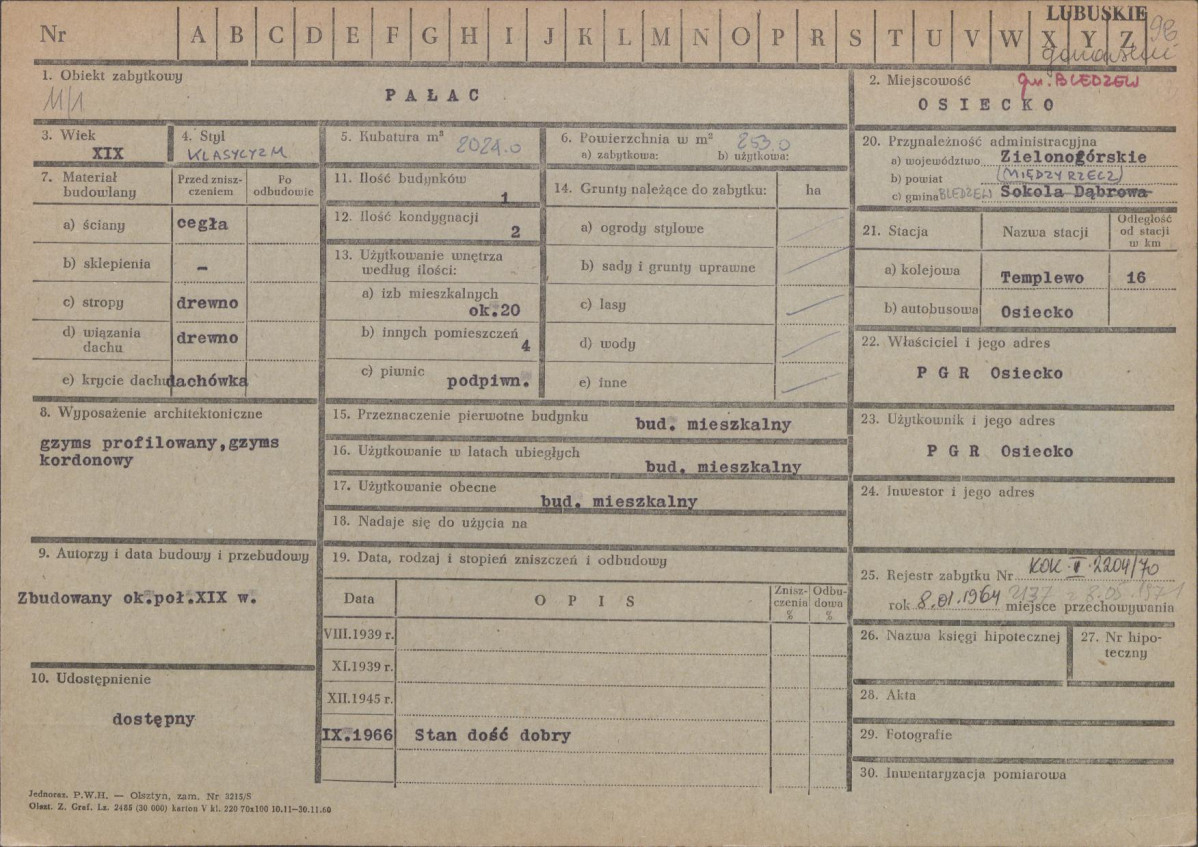 LUBUSKIE
Nr A B C D E F G H I J K L M N O P R S T U V W X Y Z
98
1. Obiekt zabytkowy
11/1
PAŁAC
2. Miejscowość gm. BLEDZEW
OSIECKO
3. Wiek
XIX
4. Styl
KLASYCYZM
5. Kubatura m³ 2024.0
6. Powierzchnia w m² 253.0
a) zabytkowa: b) użytkowa:
20. Przynależność administracyjna
a) województwo Zielonogórskie
b) powiat (MIĘDZYRZECZ)
c) gmina BLEDZEW Sokola Dąbrowa
7. Materiał budowlany
Przed znisz-
czeniem
Po
odbudowie
a) ściany cegła
b) sklepienia –
c) stropy drewno
d) wiązania dachu drewno
e) krycie dachu dachówka
11. Ilość budynków
1
12. Ilość kondygnacji
2
13. Użytkowanie wnętrza
według ilości:
a) izb mieszkalnych
ok.20
b) innych pomieszczeń
4
c) piwnic
podpiwn.
14. Grunty należące do zabytku: ha
a) ogrody stylowe
b) sady i grunty uprawne
c) lasy
d) wody
e) inne
21. Stacja Nazwa stacji Odległość
od stacji
w km
a) kolejowa Templewo 16
b) autobusowa Osiecko
22. Właściciel i jego adres
PGR Osiecko
8. Wyposażenie architektoniczne
gzyms profilowany,gzyms
kordonowy
15. Przeznaczenie pierwotne budynku
bud. mieszkalny
16. Użytkowanie w latach ubiegłych
bud. mieszkalny
17. Użytkowanie obecne
bud. mieszkalny
18. Nadaje się do użycia na
23. Użytkownik i jego adres
PGR Osiecko
24. Inwestor i jego adres
9. Autorzy i data budowy i przebudowy
Zbudowany ok.poł.XIX w.
19. Data, rodzaj i stopień zniszczeń i odbudowy
Data OPIS Znisz-
czenia
% Odbu-
dowa
%
VIII.1939 r.
XI.1939 r.
XII.1945 r.
IX.1966 Stan dość dobry
25. Rejestr zabytku Nr KOK-I-2204/70
rok 8.01.1964 2137 z 8.05.1971 miejsce przechowywania
26. Nazwa księgi hipotecznej
27. Nr hipo-
teczny
10. Udostępnienie
dostępny
28. Akta
29. Fotografie
30. Inwentaryzacja pomiarowa
Jednoraz. P.W.H. — Olsztyn, zam. Nr 3215/S
Olszt. Z. Graf. Lz. 2488 (30 000) karton V kl. 220 70x100 10.11—30.11.60